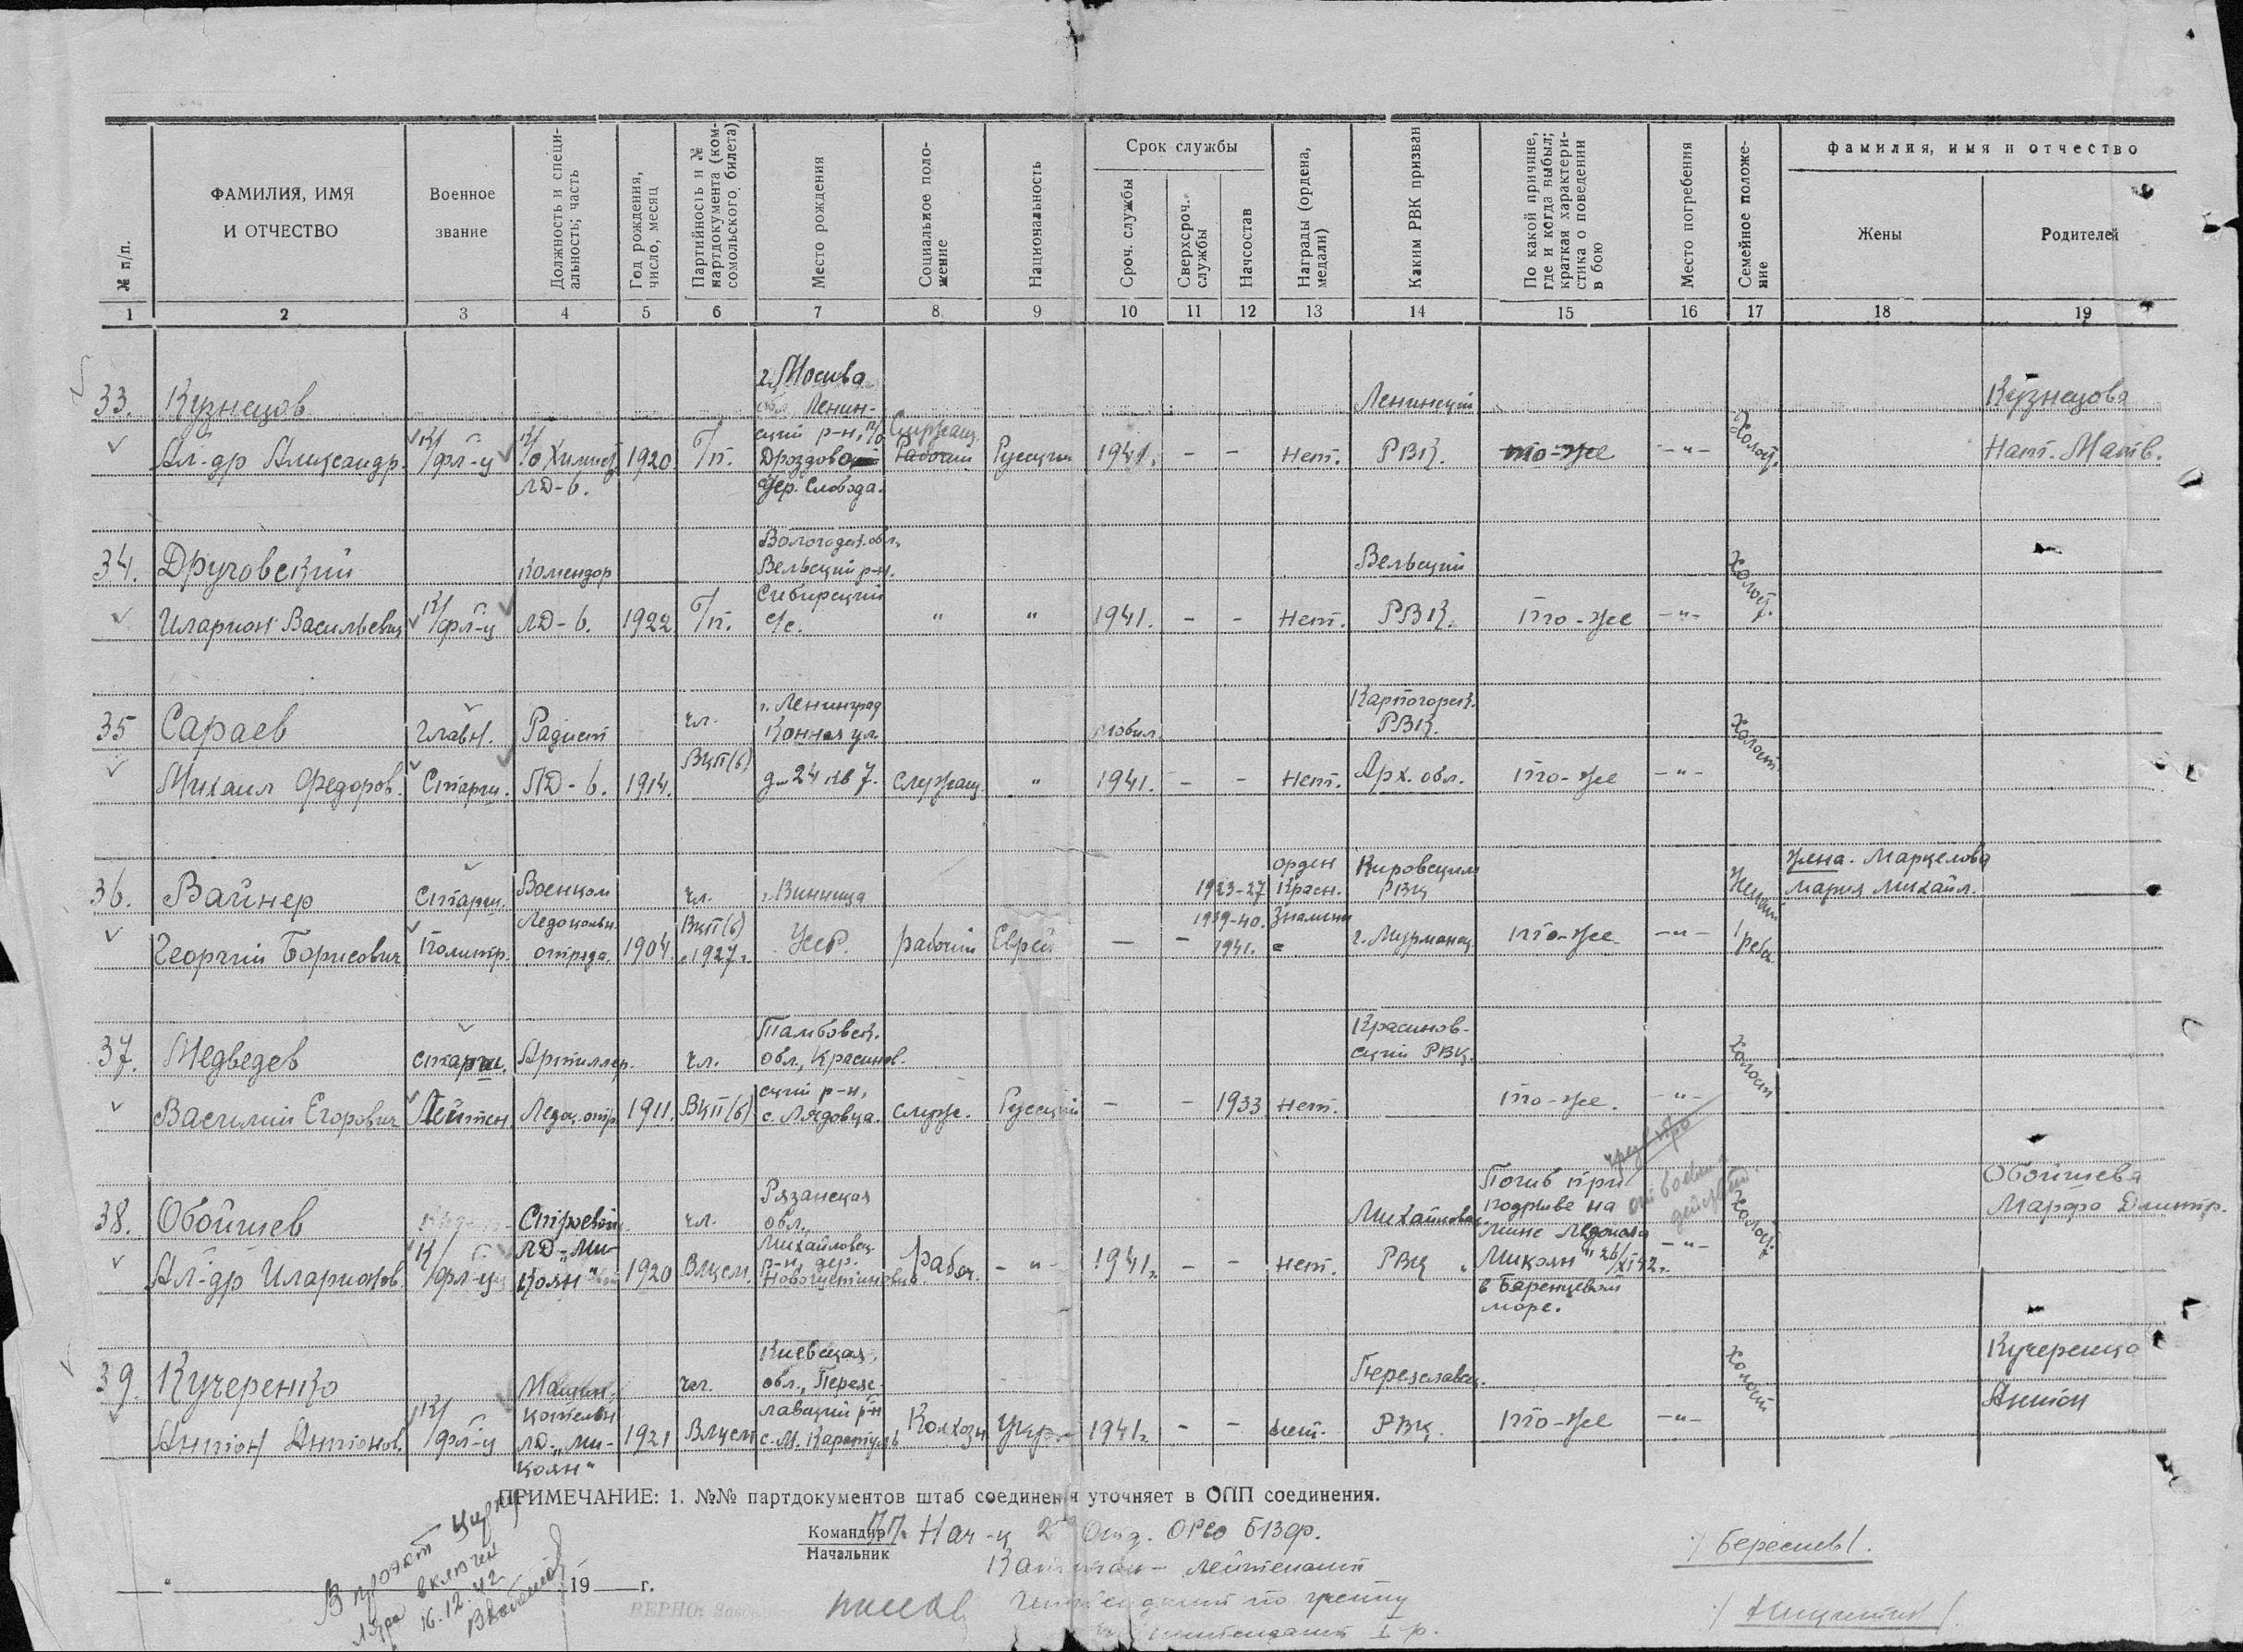 № п/п.
ФАМИЛИЯ, ИМЯ
И ОТЧЕСТВО
Военное
звание
Должность и специ-
альность; часть
Год рождения,
число, месяц
Партийность и №
партдокумента (ком-
сомольского билета)
Место рождения
Социальное поло-
жение
Национальность
Срок службы
Сроч. службы
Сверхсроч.
службы
Начсостав
Награды (ордена,
медали)
Каким РВК призван
По какой причине,
где и когда выбыл;
краткая характери-
стика о поведении
в бою
Место погребения
Семейное положе-
ние
фамилия, имя и отчество
Жены
Родителей
1 2 3 4 5 6 7 8 9 10 11 12 13 14 15 16 17 18 19
33.
Кузнецов
Ал-др Александр.
К/фл-ц
Химист
ЛД-6.
1920
б/п.
г. Москва
Ленин-
ский р-н, п/о
Дроздово
дер. Слобода.
Служащ.
Рабочий
Русский
1941.
-
-
нет.
Ленинский
РВК.
то-же
-"-
Холост.
Кузнецова
Нат. Матв.
34.
Друговский
Иларион Васильевич
К/фл-ц
Комендор
ЛД-6.
1922
б/п.
Вологодск. обл,
Вельский р-н.
Сибирский
с/с.
"
"
1941.
-
-
нет.
Вельский
РВК.
то-же
-"-
Холост.
35
Сараев
Михаил Федоров.
Главн.
Старш.
Радист
ЛД-6.
1914.
чл.
ВКП(б)
г. Ленинград
Конная ул.
д-24 кв 7.
служащ.
"
мобил.
1941.
-
-
нет.
Карпогорск.
РВК.
Арх. обл.
то-же
-"-
Холост
36.
Вайнер
Георгий Борисович
Старш.
Политр.
Военком
Ледокольн.
отряда.
1904.
чл.
ВКП(б)
с 1927г.
г. Винница
УССР.
рабочий
Еврей
-
-
1923-27
1939-40.
1941.
орден
Красн.
Знамени
Кировским
РВК
г. Мурманск
то-же
-"-
Женат
1 реб.
Жена. Маркелова
Мария Михайл.
37.
Медведев
Василий Егорович
старш.
Лейтен
Артиллер.
Ледок. отр.
1911.
чл.
ВКП(б)
Тамбовск.
обл, Красинов-
ский р-н,
с. Лядовка.
служ.
Русский
-
-
1933
нет.
Красинов-
ский РВК.
то-же.
-"-
холост
38.
Обойщев
Ал-др Иларионов.
К/фл-ц
Строевой
ЛД-"Ми-
коян"
1920
чл.
Влксм.
Рязанская
обл.
Михайловск.
р-н, дер.
Рабоч.
-"-
1941г.
-
-
нет.
Михайловск.
РВК
Погиб при
подрыве на
мине Ледокола
"Микоян" 26/XI 42г.
в Баренцевом
море.
-"-
Холост.
Обойщева
Марфа Дмитр.
39.
Кучеренко
Антон Антонов.
К/фл-ц
Машин.
котельн
ЛД-"Ми-
коян"
1921
чл.
Влксм
Киевская
обл., Перяс-
лавский р-н
с. М. Каратуль
Колхозн
Укр.
1941г.
-
-
нет.
Переяславск.
РВК.
то-же
-"-
Холост
Кучеренко
Антон
ПРИМЕЧАНИЕ: 1. №№ партдокументов штаб соединения уточняет в ОПП соединения.
Командир
Начальник
п.п. Нач-к 2го Отд. ОРСО БВФ.
Капитан-лейтенант
/Береснев/.
В проэкт
включен
16.12.42
19 г.
ВЕРНО: